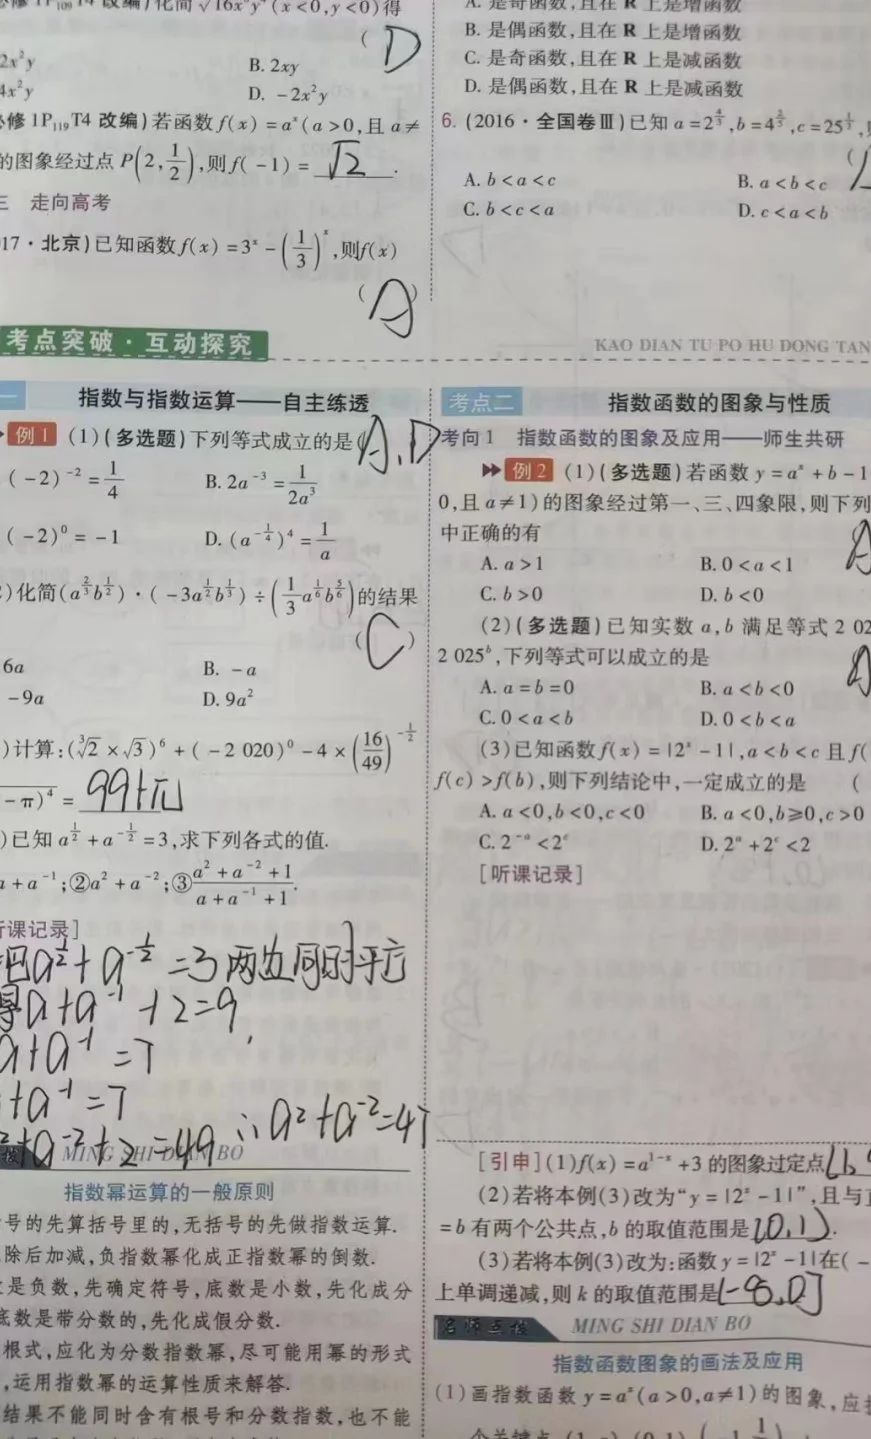 2x²y
B. 2xy
4x²y
D. -2x²y
(D
必修1P₁₁₉T4 改编)若函数f(x)=aˣ(a>0,且a≠
的图象经过点P(2,1/2),则f(-1)=√2.
三 走向高考
17·北京)已知函数f(x)=3ˣ-(1/3)ˣ,则f(x)
(A)
A. 是奇函数,且在R上是增函数
B. 是偶函数,且在R上是增函数
C. 是奇函数,且在R上是减函数
D. 是偶函数,且在R上是减函数
6. (2016·全国卷Ⅲ)已知a=2^(4/3),b=4^(2/5),c=25^(1/3),
A. b<a<c
B. a<b<c
C. b<c<a
D. c<a<b
考点突破·互动探究
KAO DIAN TU PO HU DONG TAN
指数与指数运算——自主练透
例1 (1)(多选题)下列等式成立的是(A,D
(-2)⁻²=1/4
B. 2a⁻³=1/(2a³)
(-2)⁰=-1
D. (a^(-1/4))⁴=1/a
)化简(a^(2/3)b^(1/2))·(-3a^(1/2)b^(1/3))÷(1/3 a^(1/6)b^(5/6))的结果
(C)
6a
B. -a
-9a
D. 9a²
)计算:(∛2×√3)⁶+(-2 020)⁰-4×(16/49)^(-1/2)
-π)⁴=99+π
)已知a^(1/2)+a^(-1/2)=3,求下列各式的值.
a+a⁻¹;②a²+a⁻²;③(a²+a⁻²+1)/(a+a⁻¹+1).
听课记录]
把a^(1/2)+a^(-1/2)=3两边同时平方
得a+a⁻¹+2=9
a+a⁻¹=7
+a⁻¹=7
²+a⁻²+2=49 ∴a²+a⁻²=47
MING SHI DIAN BO
指数幂运算的一般原则
号的先算括号里的,无括号的先做指数运算.
除后加减,负指数幂化成正指数幂的倒数.
是负数,先确定符号,底数是小数,先化成分
底数是带分数的,先化成假分数.
根式,应化为分数指数幂,尽可能用幂的形式
,运用指数幂的运算性质来解答.
结果不能同时含有根号和分数指数,也不能
考点二 指数函数的图象与性质
考向1 指数函数的图象及应用——师生共研
例2 (1)(多选题)若函数y=aˣ+b-1
0,且a≠1)的图象经过第一、三、四象限,则下列
中正确的有
A. a>1
B. 0<a<1
C. b>0
D. b<0
(2)(多选题)已知实数a,b满足等式2 02
2 025ᵇ,下列等式可以成立的是
A. a=b=0
B. a<b<0
C. 0<a<b
D. 0<b<a
(3)已知函数f(x)=|2ˣ-1|,a<b<c且f(
f(c)>f(b),则下列结论中,一定成立的是 (
A. a<0,b<0,c<0
B. a<0,b≥0,c>0
C. 2⁻ᵃ<2ᶜ
D. 2ᵃ+2ᶜ<2
[听课记录]
[引申](1)f(x)=a¹⁻ˣ+3的图象过定点
(2)若将本例(3)改为“y=|2ˣ-1|”,且与
=b有两个公共点,b的取值范围是(0,1).
(3)若将本例(3)改为:函数y=|2ˣ-1|在(-
上单调递减,则k的取值范围是(-∞,0]
名师点拨 MING SHI DIAN BO
指数函数图象的画法及应用
(1)画指数函数y=aˣ(a>0,a≠1)的图象,应